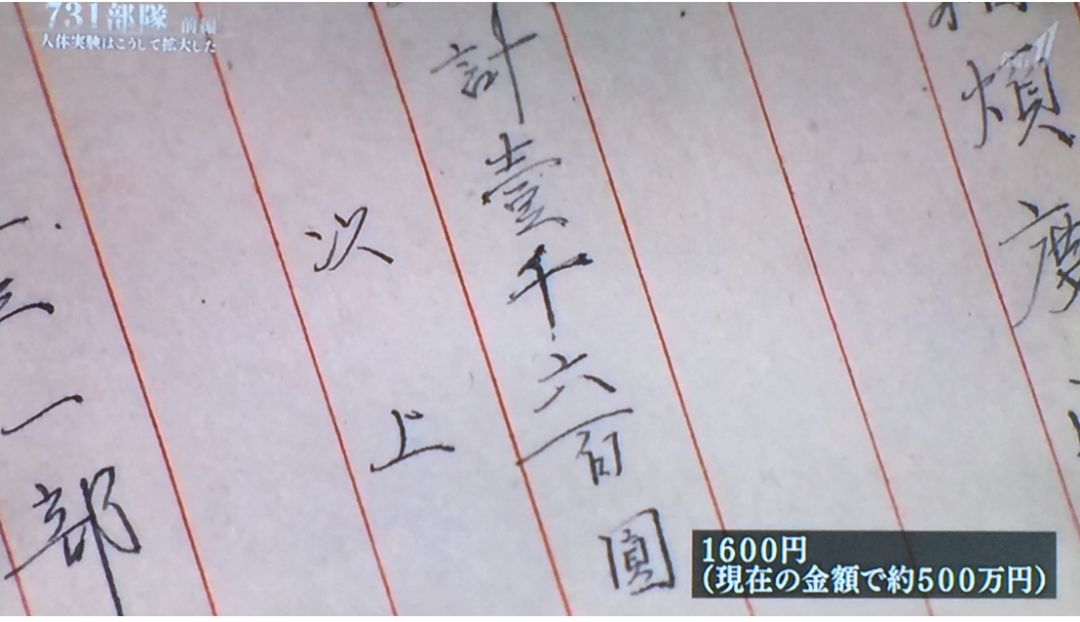 731部隊 前編
人体実験はこうして拡大した
計壹千六百圓
以上
三一部
1600円
(現在の金額で約500万円)